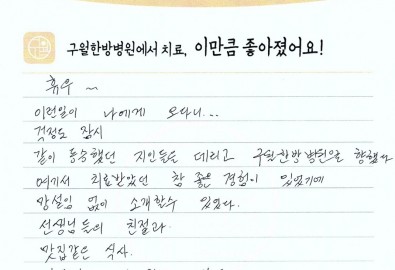 구월한방병원에서 치료, 이만큼 좋아졌어요!
휴우 ~
이런일이 나에게 오다니...
걱정도 잠시
같이 동승했던 지인들을 데리고 구월한방병원으로 향했다
여기서 치료받았던 참 좋은 경험이 있었기에
망설임 없이 소개할수 있었다.
선생님들의 친절과.
맛집같은 식사.